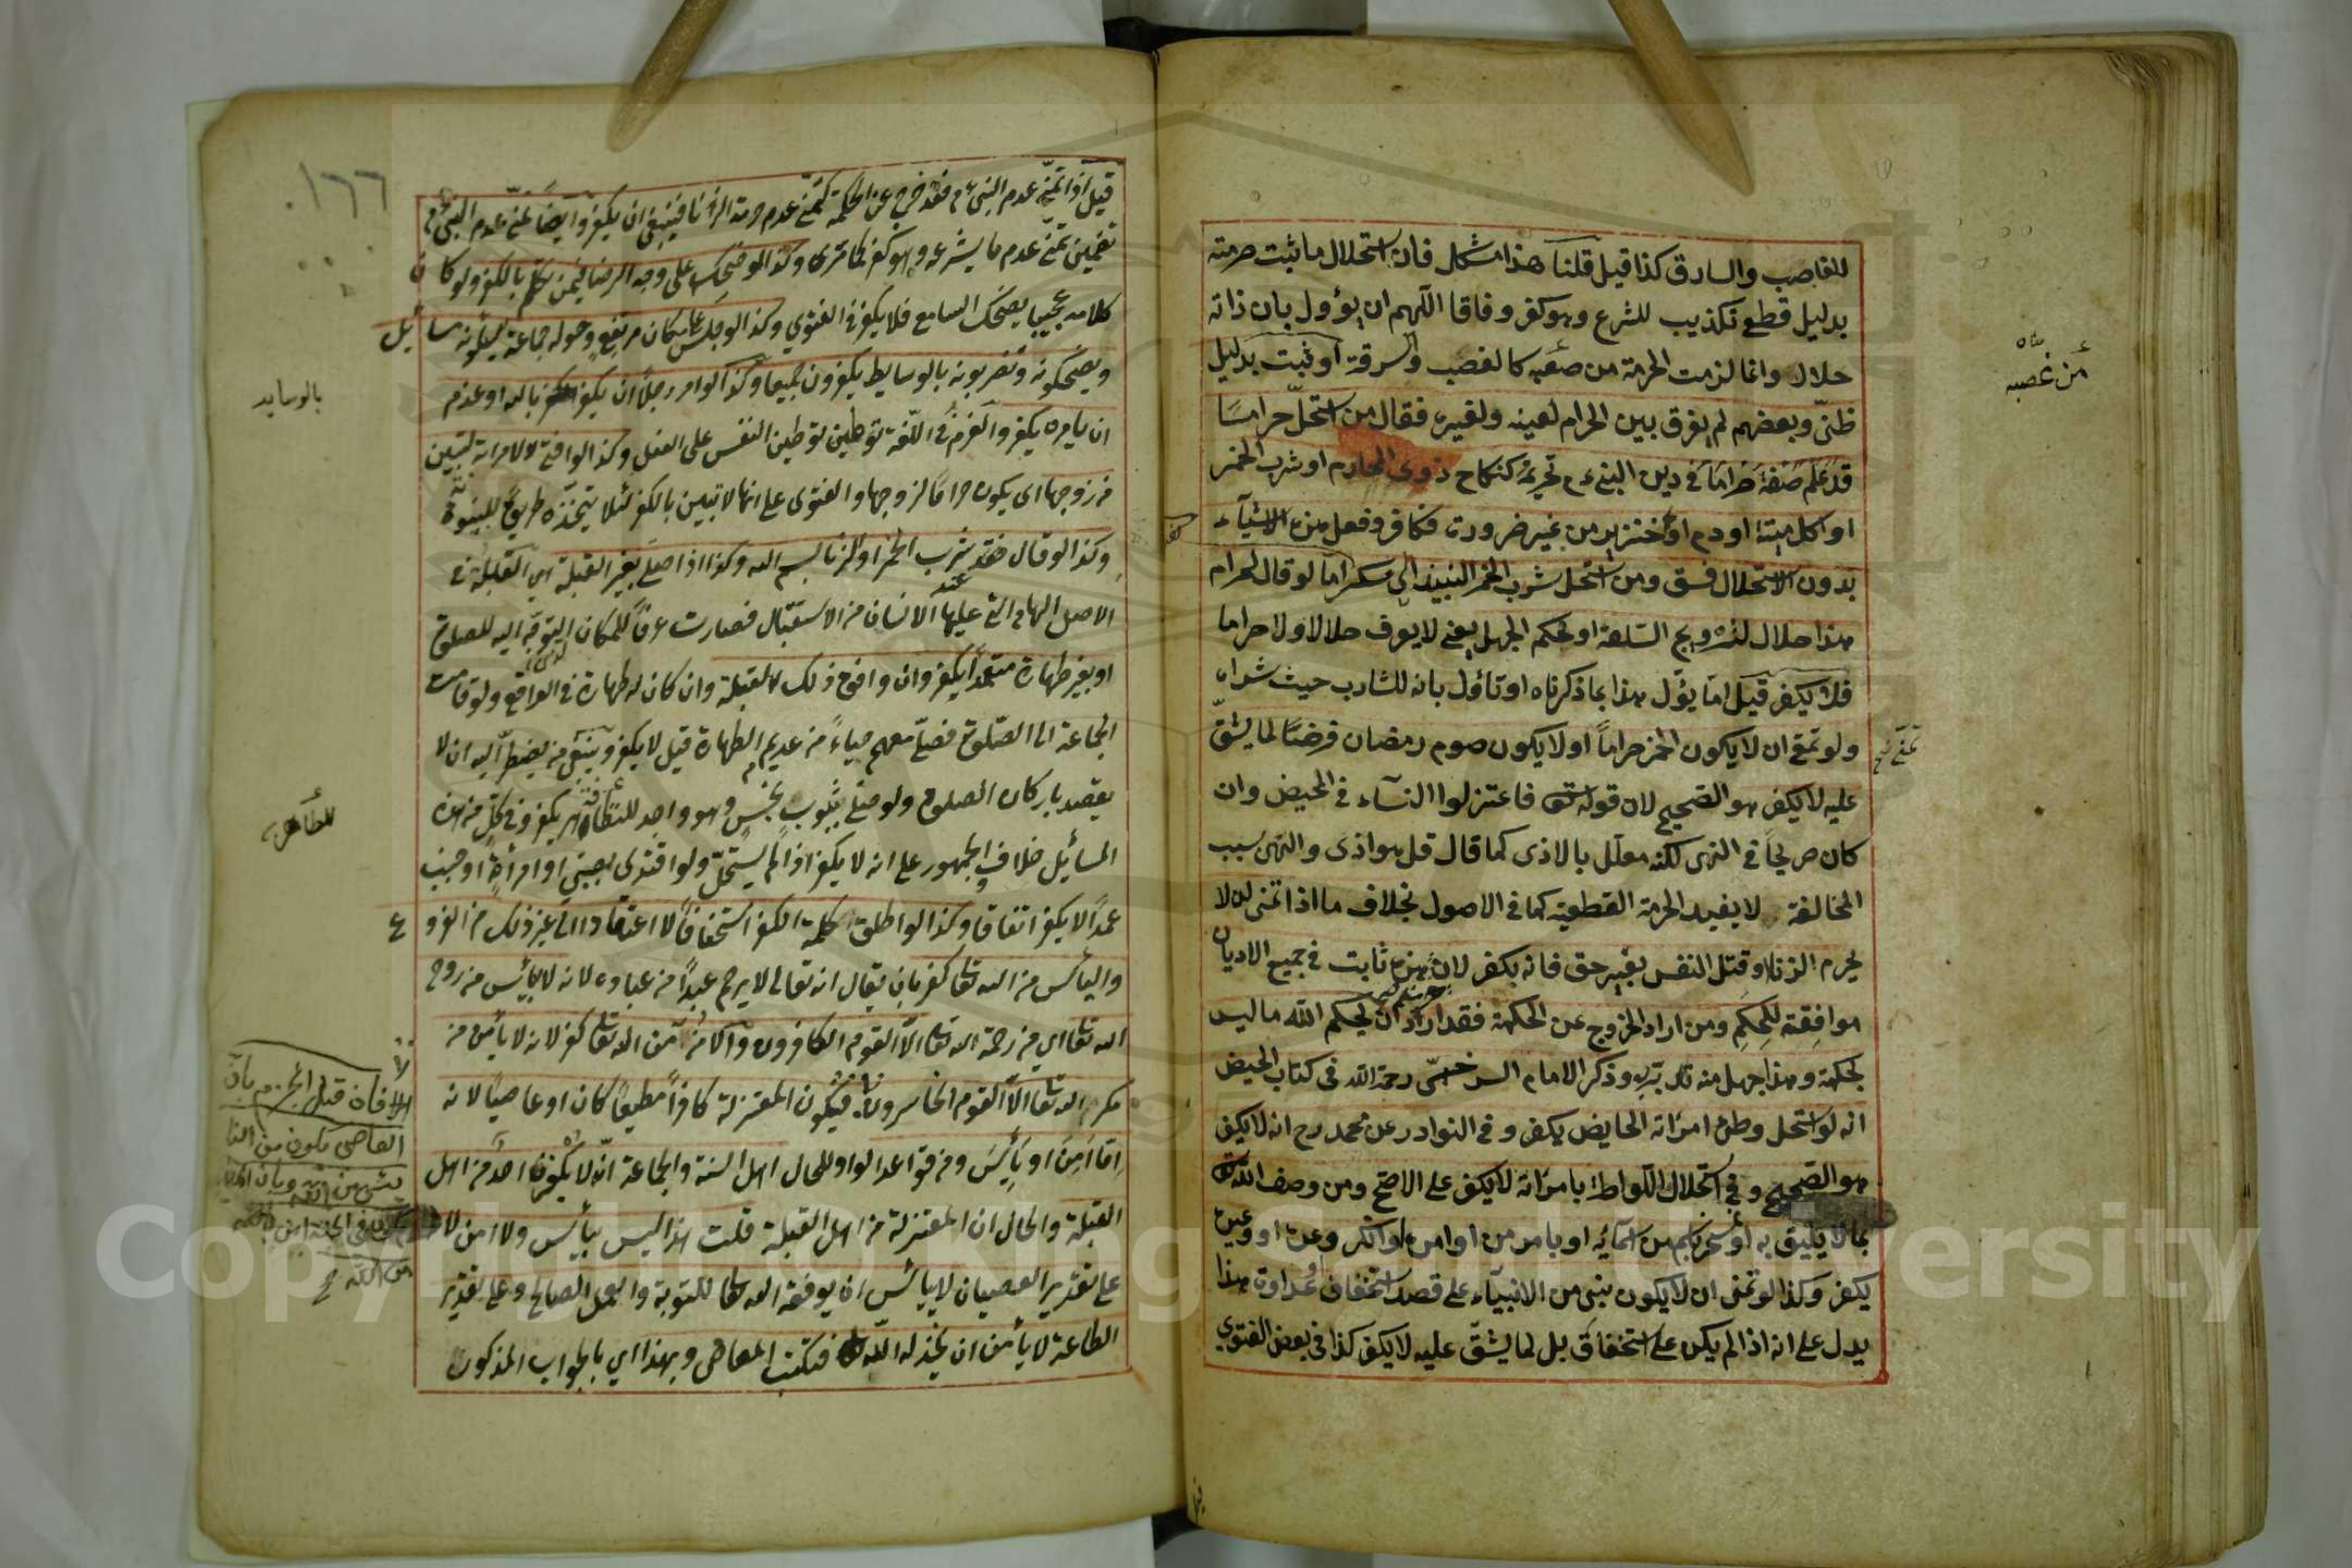 للغاصب والسارق كذا قيل قلنا هذا مشكل فان استحلال ما ثبت حرمته
بدليل قطع تكذيب للشرع وهو كفر وفاقا اللهم ان يؤول بان ذاته
حلال وانما لزمت الحرمة من صفته كالغصب والسرقة او ثبت بدليل
ظنّي وبعضهم لم يفرق بين الحرام لعينه ولغيره فقال من استحلّ حراما
قد علم في دين النبي ءم تحريمه كنكاح ذوى المحارم او شرب الخمر
او اكل ميتة او دم او خنزير من غير ضرورة فكافر وفعل هذه الاشياء
بدون الاستحلال فسق ومن استحل شرب النبيذ الى السكر اما لو قال لحرام
هذا حلال لترويج السلعة او بحكم الجهل يعني لا يعرف حلالا ولا حراما
فلا يكفر قيل امّا يؤّل هذا بما ذكرناه او تاؤل بانه للشارب حيث شراه
ولو تمنى ان لا يكون الخمر حراماً او لا يكون صوم رمضان فرضًا لما يشقّ
عليه لا يكفر هو الصحيح لان قوله تعالى فاعتزلوا النسآء في المحيض وان
كان صريحاً في النهى لكنه معلّل بالاذى كما قال قل هو اذى والنهى بسبب
المخالفة لا يفيد الحرمة القطعية كما في الاصول بخلاف ما اذا تمنى ان لا
يحرم الزنا وقتل النفس بغير حق فانه يكفر لان هذه ثابت في جميع الاديان
موافقة للحكم ومن اراد الخروج عن الحكمة فقد اراد ان يحكم الله ما ليس
بحكمة وهذا جهل منه بربه وذكر الامام السرخسّى رحمة الله فى كتاب الحيض
انه لو استحل وطئ امرأته الحايض يكفر و فى النوادر عن محمد رح انه لا يكفر
هو الصحيح وفى استحلال اللواطة بامرأته لا يكفر على الاصح ومن وصف الله تعالى
بما لا يليق به او سخر باسم من اسمآئه او بامر من اوامره او انكر وعده او وعيده
يكفر وكذا لو تمنى ان لا يكون نبى من الانبيآء على قصد استخفاف او عداوة هذا
يدل على انه اذا لم يكن على استخفاف بل لما يشقّ عليه لا يكفر كذا فى بعض الفتوى
من غصبه
تمنّى
١٦٦
قيل اذا تمنّى عدم النبيء م فقد خرج عن الحكمة كتمنّى عدم حرمة الزنا فينبغى ان يكفر وايضاً تمنّى عدم النبىء م
تضمين تمنّى عدم ما يشرعه وهو كفر كما ترى وكذا لو ضحك على وجه الرضا فيمن تكلم بالكفر ولو كان
كلامه عجيبا يضحك السامع فلا يكفر في الفتوي وكذا لو جلس على مكان مرتفع وحوله جماعة يسألونه مسائيل
ويضحكونه ويضربونه بالوسايط يكفرون جميعا وكذا لو امر رجلاً ان يكفر بالله او عزم
ان يامره يكفر والعزم في اللّغة توطين النفس على الفعل وكذا لو افتى لامراة لتبين
من زوجها اى يكون حراما لزوجها والفتوى على انها لا تبين بالكفر لئلا يتخذه طريق للبينونة
وكذا لو قال عند شرب الخمر او الزنا بسم الله وكذا اذا صلى بغير القبلة اي القبلة في
الاصل الهاى التى عليها الانسان من الاستقبال فصارت عرفاً للمكان المتوجّه اليه للصلوة
او بغير طهارة متعمّداً يكفر وان وافق ذلك القبلة وان كان له طهارة في الواقع ولو قامت
الجماعة الى الصّلوة فصلّى معهم حياءً من عديم الطهارة قيل لا يكفر وينبغى من يضطرّ اليه ان لا
يقصد باركان الصلوة ولو صلّى بثوبٍ نجسٍ وهو واجد للطاهر يكفر وفى كلّ من هذه
المسائيل خلاف والجمهور على انه لا يكفر اذا لم يستحلّ ولو اقتدى بصبي او امرأة او جنب
عمداً لا يكفر اتفاقا وكذا لو اطلق كلمة الكفر استخفافاً لا اعتقادا الى غير ذلك من الفروع
واليأس من الله تعالى كفر بان يقال انه تعالى لا يرحم عبداً من عباده لانه لا ييأس من روح
الله تعا اي من رحمة الله تعا الّا القوم الكافرون والامن من الله تعا كفر لانه لا يأمن من
مكر الله تعا الّا القوم الخاسرون فيكون المعتزلة كافراً مطيعاً كان او عاصياً لانه
امّا امِنَ او يأيس ومن قواعد الواو للحال اهل السنة والجماعة انّه لا يكفرون احدٌ من اهل
القبلة والحال ان المعتزلة من اهل القبلة قلت هذا ليس بيأس ولا امن لا
على تقدير العصيان لا ييأس ان يوفقه الله تعا للتوبة والعمل الصالح وعلى تقدير
الطاعة لا يأمن ان يخذله اللّه فيكتب المعاصى وبهذا اي بالجواب المذكور
بالوسايد
للطاهر
الجزم بان
العاصى يكون من النا
من الله
Copyright © King Saud University